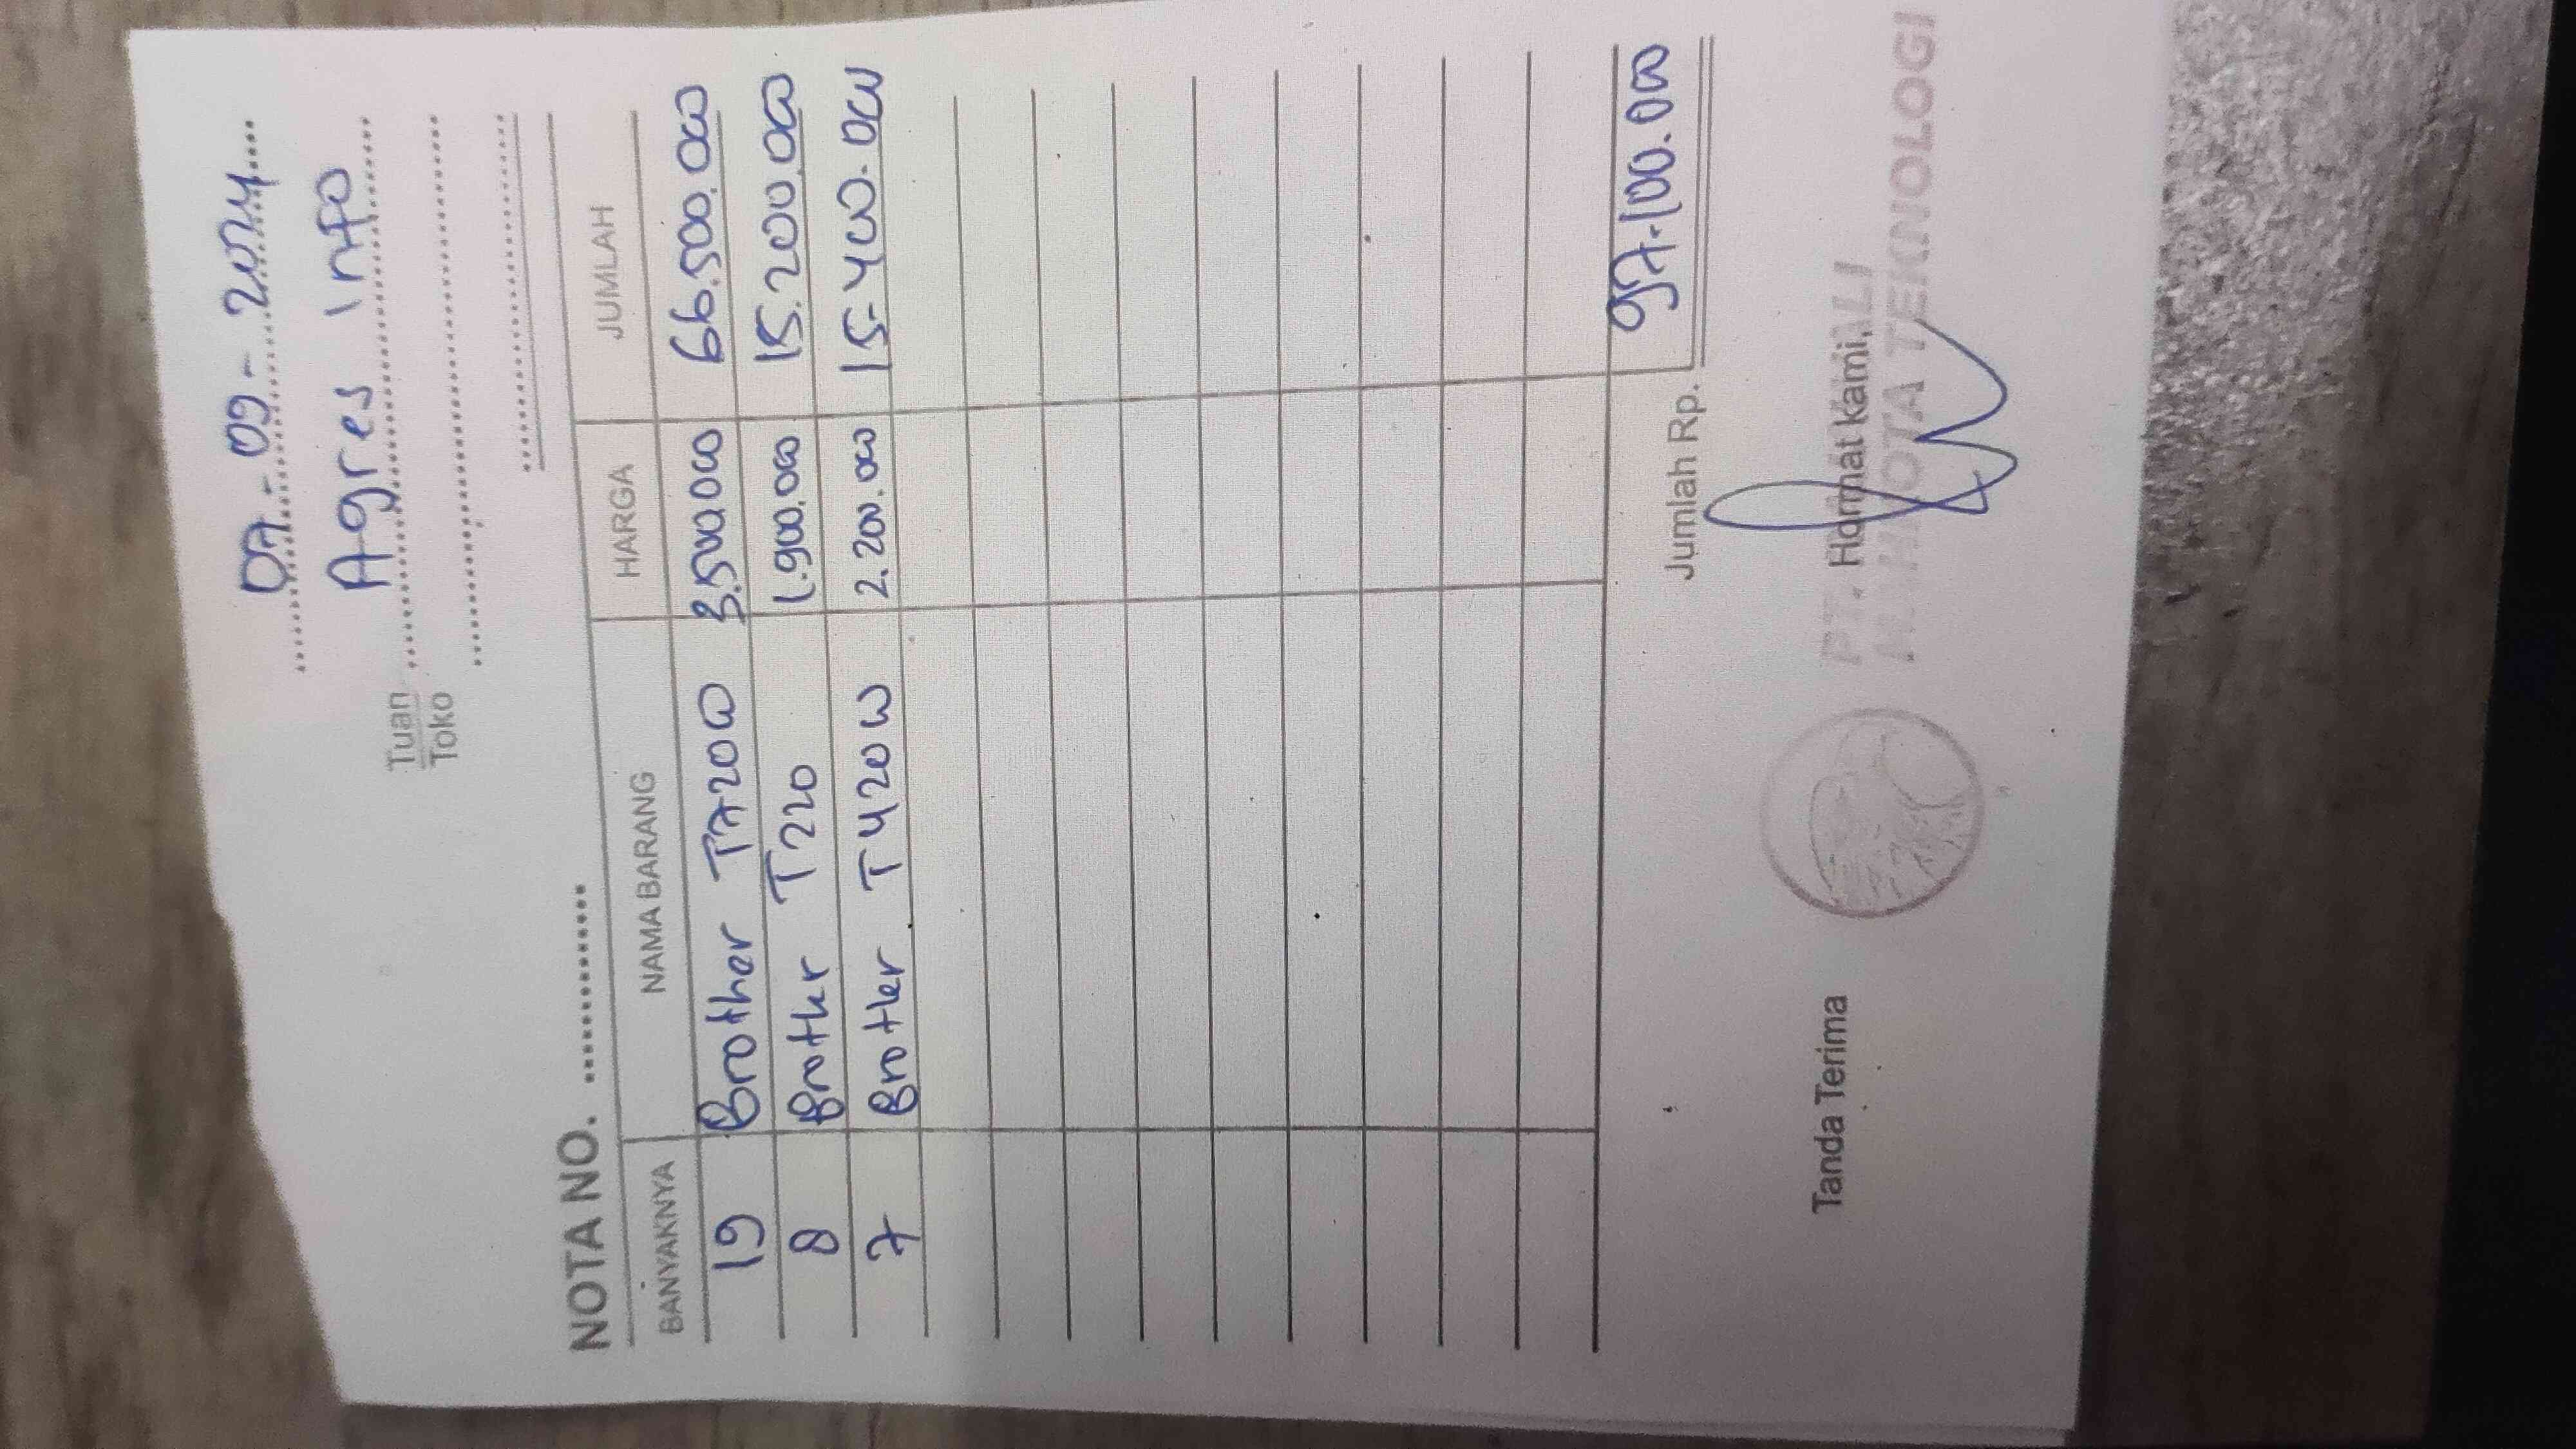 07-09-2024
Tuan Agres Info
Toko
NOTA NO.
BANYAKNYA NAMA BARANG HARGA JUMLAH
19 Brother T720W 3.500.000 66.500.000
8 Brother T220 1.900.000 15.200.000
7 Brother T420W 2.200.000 15.400.000
Jumlah Rp. 97.100.000
Tanda Terima Hormat Kami,
PT.
TEKNOLOGI